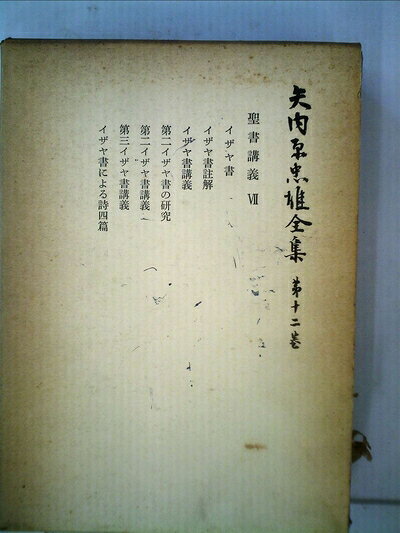 矢内原忠雄全集 第十二巻
聖書講義 Ⅶ
イザヤ書
イザヤ書註解
イザヤ書講義
第二イザヤ書の研究
第二イザヤ書講義
第三イザヤ書講義
イザヤ書による詩四篇